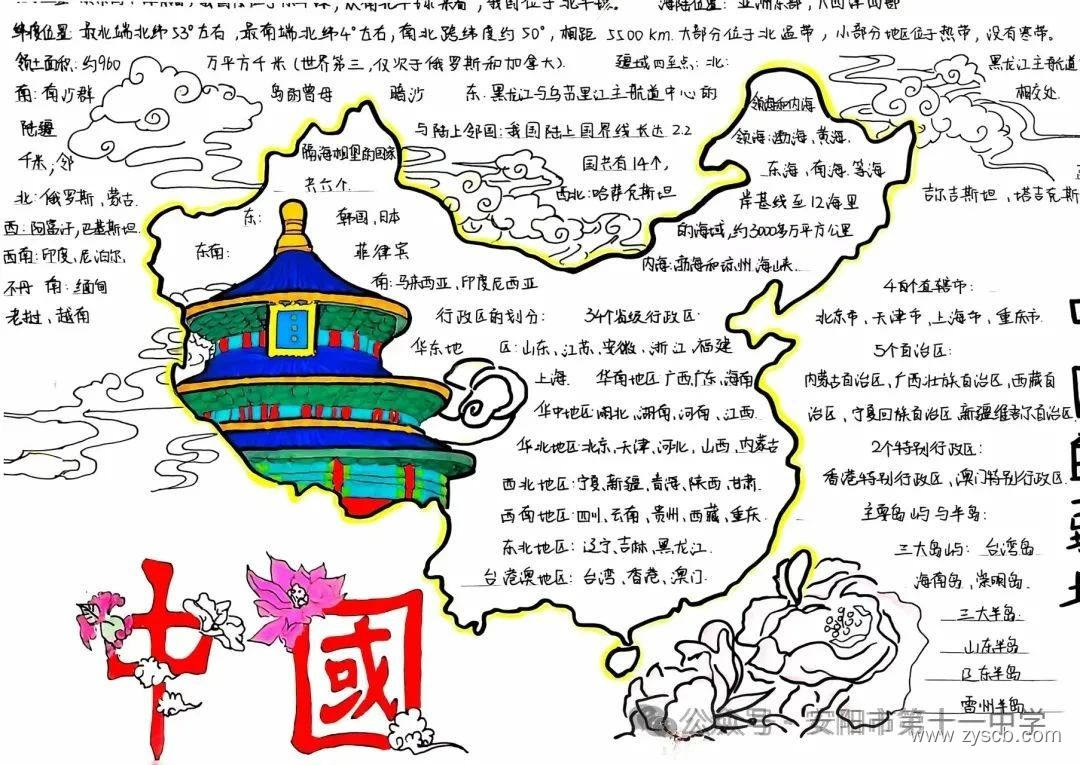 纬度位置:最北端北纬53°左右,最南端北纬4°左右,南北跨纬度约50°,相距5500km.大部分位于北温带,小部分地区位于热带,没有寒带。
领土面积:约960万平方千米(世界第三,仅次于俄罗斯和加拿大).
疆域四至点:北:黑龙江主航道
南:南沙群
暗沙
东.黑龙江与乌苏里江主航道中心的
相交处.
陆疆
与陆上邻国:我国陆上国界线长达2.2
千米,邻
国共有14个,
北:俄罗斯、蒙古.
西北:哈萨克斯坦
吉尔吉斯坦、塔吉克斯
西:阿富汗,巴基斯坦.
西南:印度、尼泊尔.
不丹 南:缅甸
老挝、越南
隔海相望的国家
共六个.
东:韩国、日本
东南:菲律宾
南:马来西亚、印度尼西亚
领海和内海
领海:渤海,黄海.
东海、南海.等海
岸基线至12海里
的海域,约3000多万平方公里
内海:渤海和琼州.海峡.
行政区的划分: 34个省级行政区:
华东地区:山东、江苏、安徽、浙江、福建
上海. 华南地区广西,广东,海南
华中地区湖北、湖南、河南、江西.
华北地区:北京、天津、河北、山西、内蒙古
西北地区:宁夏、新疆、青海、陕西、甘肃.
西南地区:四川、云南、贵州、西藏、重庆.
东北地区:辽宁、吉林、黑龙江.
台港澳地区:台湾、香港、澳门.
4个直辖市:
北京市、天津市、上海市、重庆市.
5个自治区:
内蒙古自治区、广西壮族自治区、西藏自
治区、宁夏回族自治区.新疆维吾尔自治区
2个特别行政区:
香港特别行政区、澳门特别行政区.
主要岛屿与半岛:
三大岛屿:台湾岛
海南岛、崇明岛.
三大半岛.
山东半岛
辽东半岛
雷州半岛
中國
公众号·安阳市第十一中学
www.zyscb.com